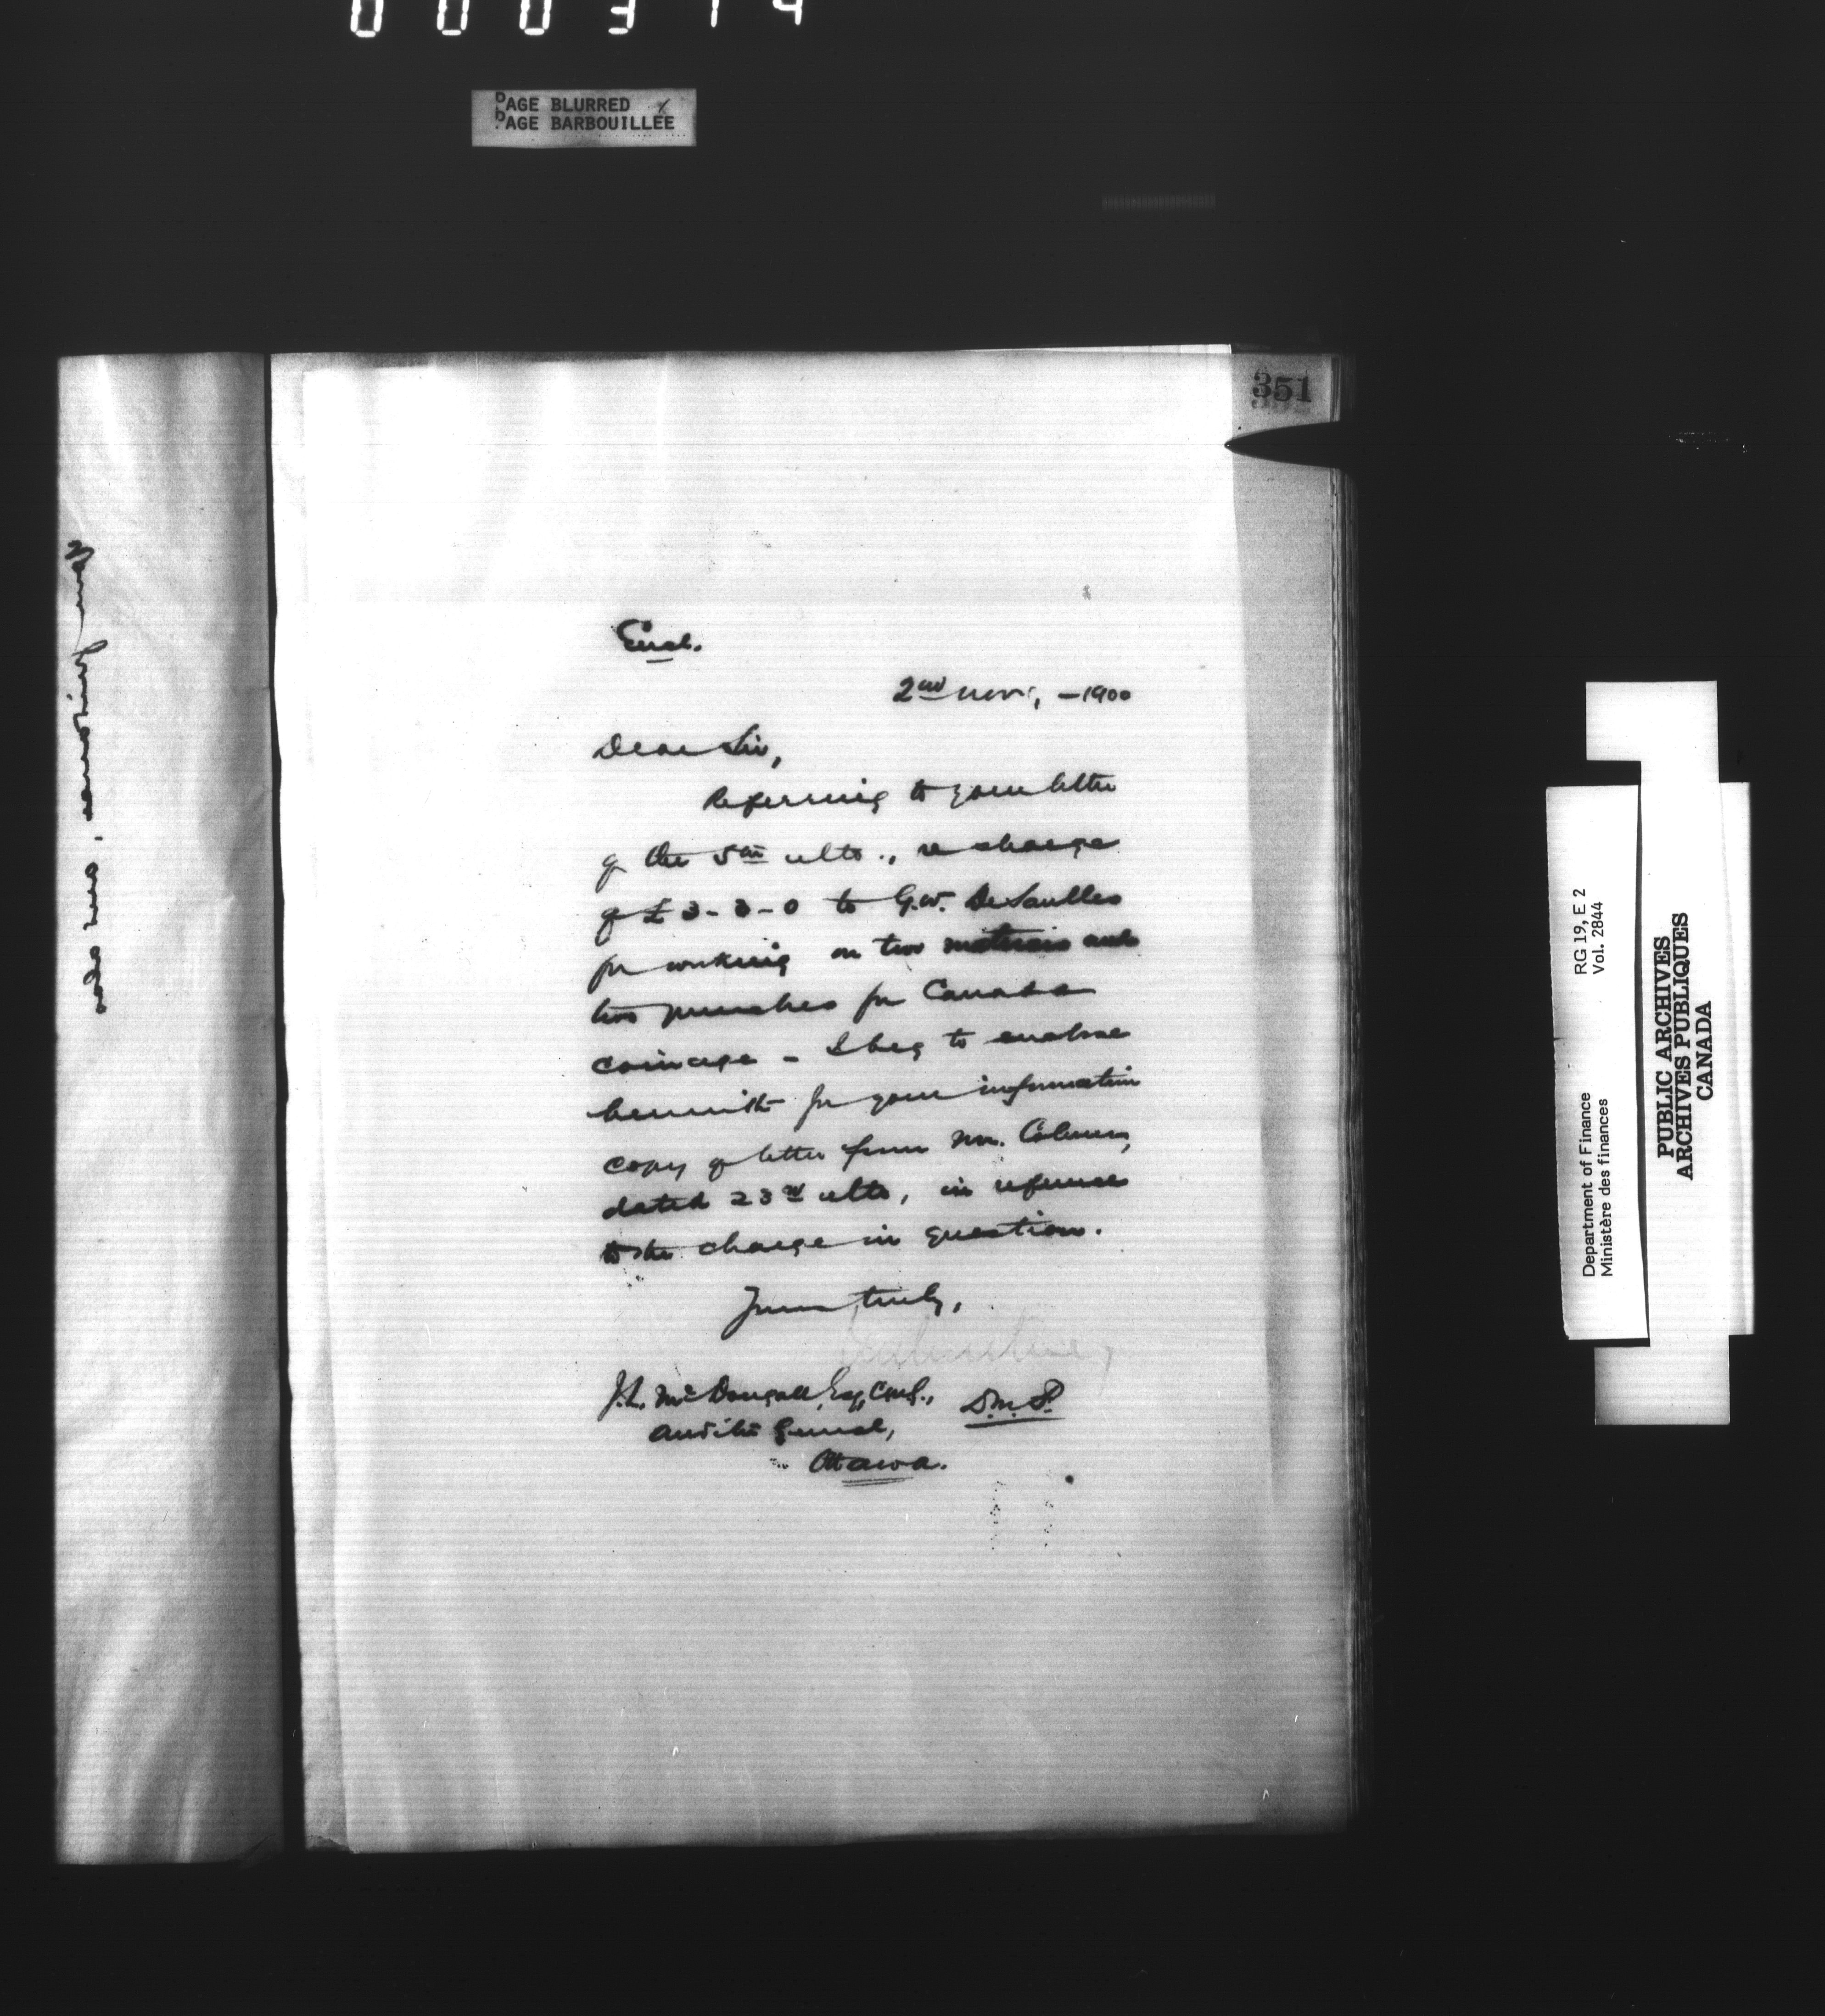 000314
PAGE BLURRED
PAGE BARBOUILLÉE
351
Encl.
2nd Nov., - 1900
Dear Sir,
Referring to your letter
of the 5th ulto., re charge
of £3-3-0 to G.W. DeSaulles
for working on two matrices and
two punches for Canada
coinage - I beg to enclose
herewith for your information
copy of letter from Mr. Colmer,
dated 23rd ulto, in reference
to the charge in question.
Yours truly,
J.L. McDougall, Esq, C.M.G.,
D.M.F.
Auditor General,
Ottawa.
RG 19, E 2
Vol. 2844
Department of Finance
Ministère des finances
PUBLIC ARCHIVES
ARCHIVES PUBLIQUES
CANADA